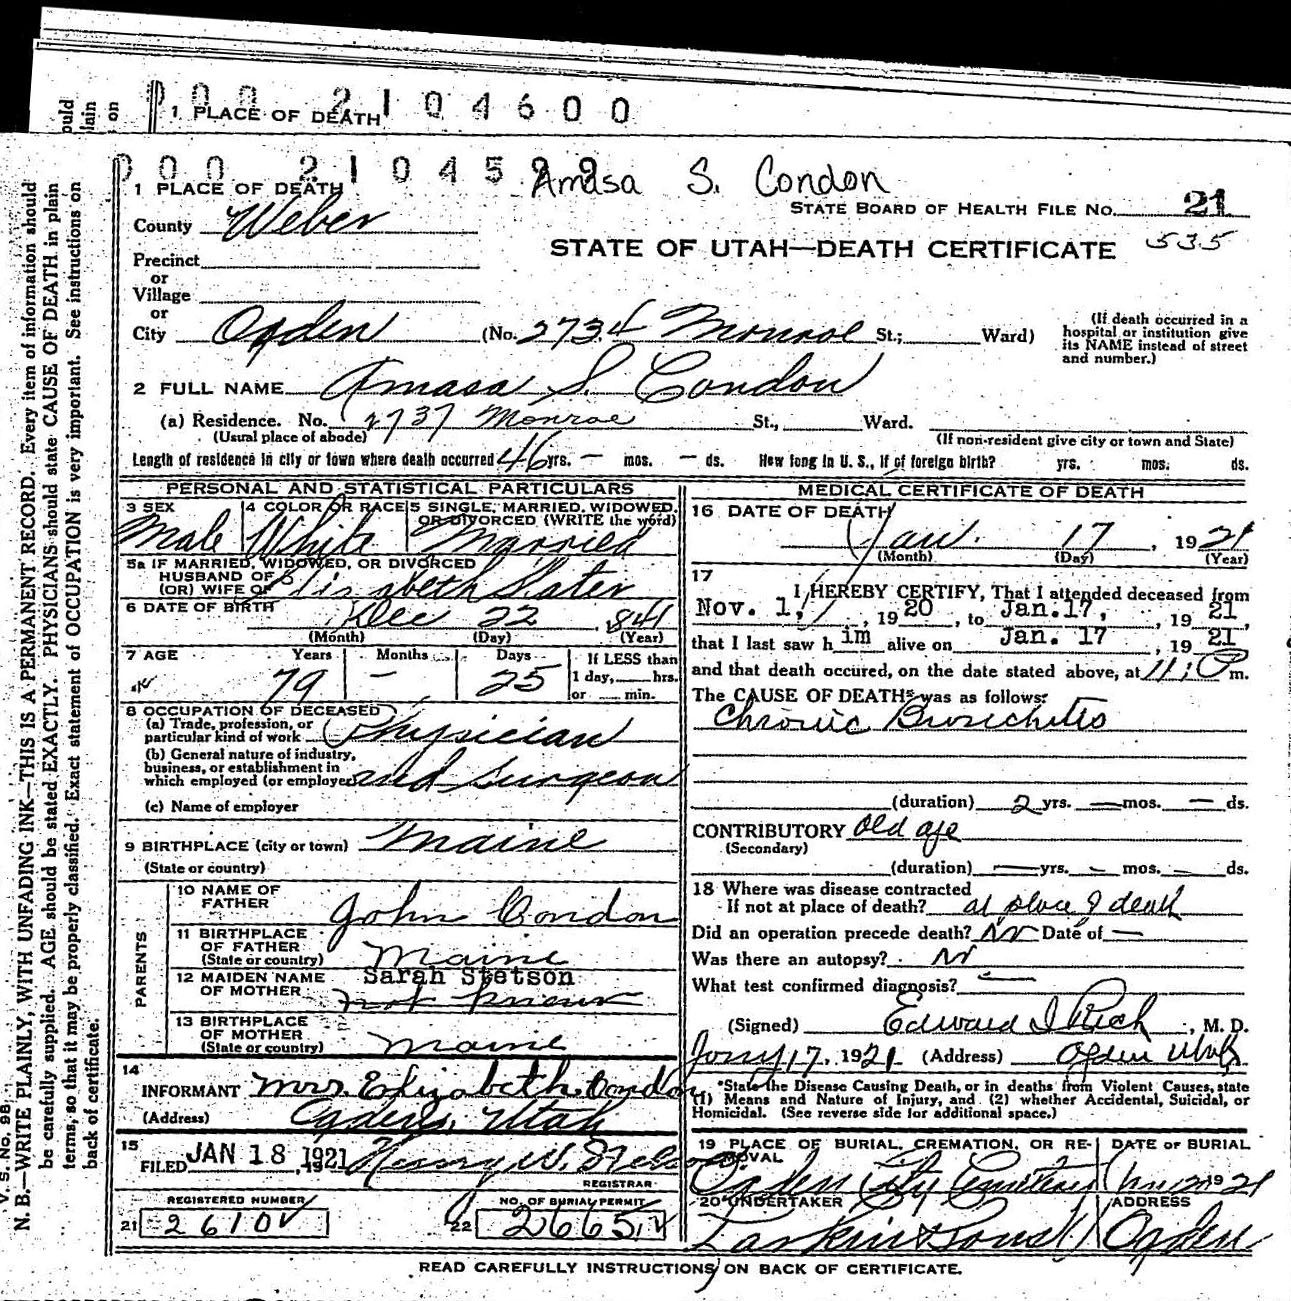 ould
lain
on
00 2104600
1 PLACE OF DEATH
000 2104599
Amasa S. Condon
1 PLACE OF DEATH
STATE BOARD OF HEALTH FILE No. 21
County Weber
STATE OF UTAH—DEATH CERTIFICATE 535
Precinct
or
Village
or
City Ogden (No. 2734 Monroe St.; Ward)
(If death occurred in a
hospital or institution give
its NAME instead of street
and number.)
2 FULL NAME Amasa S. Condon
(a) Residence. No. 2737 Monroe St., Ward.
(Usual place of abode) (If non-resident give city or town and State)
Length of residence in city or town where death occurred 46 yrs. — mos. — ds. How long in U. S., if of foreign birth? yrs. mos. ds.
PERSONAL AND STATISTICAL PARTICULARS
3 SEX 4 COLOR OR RACE 5 SINGLE, MARRIED, WIDOWED,
OR DIVORCED (WRITE the word)
Male White Married
5a IF MARRIED, WIDOWED, OR DIVORCED
HUSBAND OF
(OR) WIFE OF Elizabeth Slater
6 DATE OF BIRTH Dec 22 841
(Month) (Day) (Year)
7 AGE Years Months Days If LESS than
1 day, hrs.
or min.
79 — 25
8 OCCUPATION OF DECEASED
(a) Trade, profession, or
particular kind of work Physician
(b) General nature of industry,
business, or establishment in
which employed (or employer) and surgeon
(c) Name of employer
9 BIRTHPLACE (city or town) Maine
(State or country)
PARENTS
10 NAME OF
FATHER John Condon
11 BIRTHPLACE
OF FATHER
(State or country) Maine
12 MAIDEN NAME Sarah Stetson
OF MOTHER not known
13 BIRTHPLACE
OF MOTHER
(State or country) Maine
14
INFORMANT Mrs. Elizabeth Condon
(Address) Ogden, Utah
15
FILED JAN 18 1921 Henry W.
REGISTRAR
REGISTERED NUMBER
21 2610
NO. OF BURIAL PERMIT
22 2665
MEDICAL CERTIFICATE OF DEATH
16 DATE OF DEATH
Jan. 17, 1921
(Month) (Day) (Year)
17
I HEREBY CERTIFY, That I attended deceased from
Nov. 1, 1920, to Jan. 17, 1921,
that I last saw him alive on Jan. 17 1921
and that death occured, on the date stated above, at 11: P m.
The CAUSE OF DEATH* was as follows:
Chronic Bronchitis
(duration) 2 yrs. — mos. — ds.
CONTRIBUTORY old age
(Secondary)
(duration) — yrs. - mos. ds.
18 Where was disease contracted
If not at place of death? at place of death
Did an operation precede death? No Date of —
Was there an autopsy? No
What test confirmed diagnosis? —
(Signed) Edward I Rich, M. D.
Jany 17, 1921 (Address) Ogden Utah
*State the Disease Causing Death, or in deaths from Violent Causes, state
(1) Means and Nature of Injury, and (2) whether Accidental, Suicidal, or
Homicidal. (See reverse side for additional space.)
19 PLACE OF BURIAL, CREMATION, OR RE-
MOVAL
DATE OF BURIAL
Ogden City Cemetery 1921
20 UNDERTAKER ADDRESS
Larkin & Sons Ogden
READ CAREFULLY INSTRUCTIONS ON BACK OF CERTIFICATE.
V. S. No. 98
N. B.—WRITE PLAINLY, WITH UNFADING INK—THIS IS A PERMANENT RECORD. Every item of information should
be carefully supplied. AGE should be stated EXACTLY. PHYSICIANS should state CAUSE OF DEATH in plain
terms, so that it may be properly classified. Exact statement of OCCUPATION is very important. See instructions on
back of certificate.